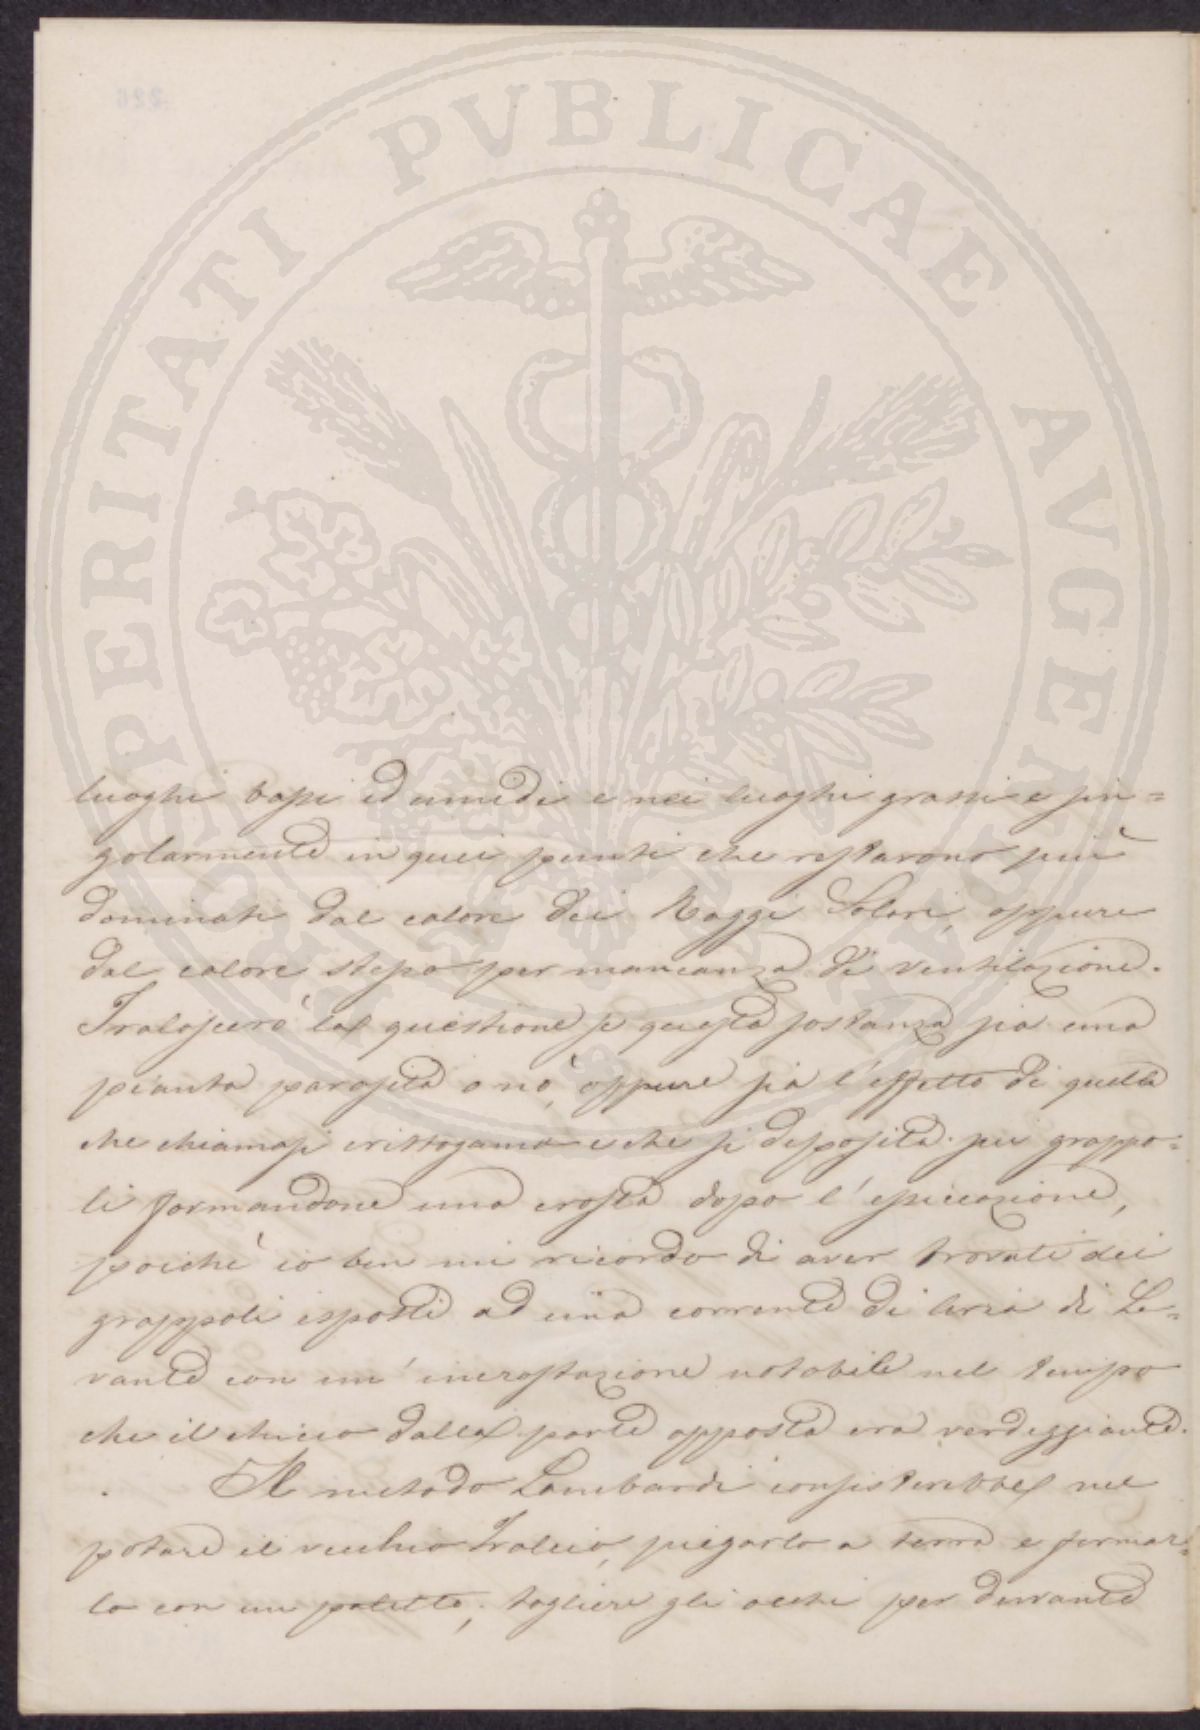 PROSPERITATI PVBLICAE AVGENDAE
luoghi bassi ed umidi e nei luoghi grassi e sin=
golarmente in quei punti che restarono più
dominati dal calore dei Raggi Solari, oppure
dal calore stesso per mancanza di ventilazione.
Tralascierò la questione se questa sostanza sia una
pianta parasita o nò, oppure sia l'effetto di quella
che chiamasi crittogama e che si deposita sui grappo=
li formandone una crosta dopo l'essiccazione,
poichè io ben mi ricordo di aver trovati dei
grappoli esposti ad una corrente di aria di Le=
vante con un'incrostazione notabile nel tempo
che il chicco dalla parte opposta era verdeggiante.
Il metodo Lombardi consisterebbe nel
potare il vecchio Tralcio, piegarlo a terra e fermar=
lo con un paletto, togliere gli occhi per durante